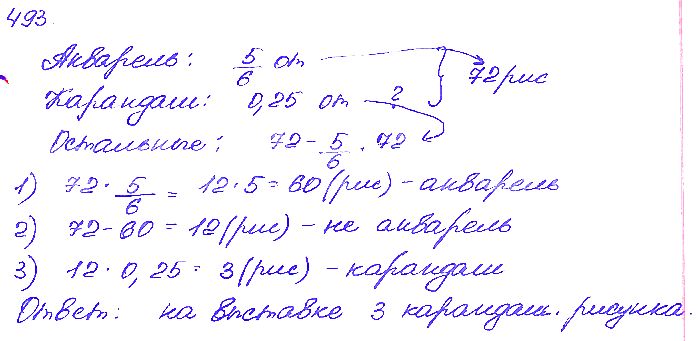 493.
Акварель: 5/6 от
Карандаш: 0,25 от ? } 72 рис
Остальные: 72 - 5/6 · 72
1) 72 · 5/6 = 12 · 5 = 60 (рис) - акварель
2) 72 - 60 = 12 (рис) - не акварель
3) 12 · 0,25 = 3 (рис) - карандаш
Ответ: на выставке 3 карандаш. рисунка.